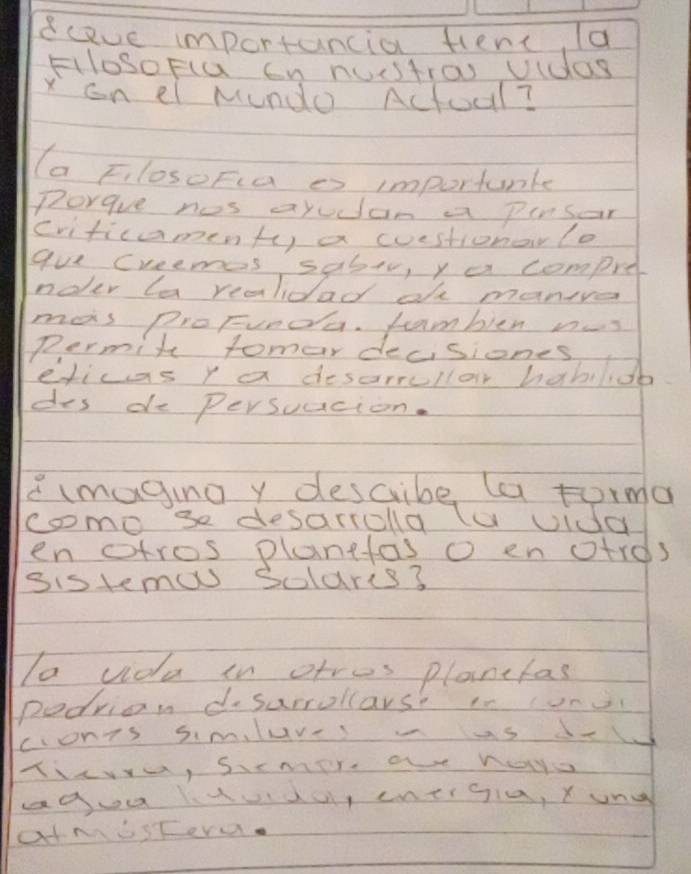 ¿Que importancia tiene la
Filosofia en nuestras vidas
y en el Mundo Actual?
la Filosofia es importante
porque nos ayudan a pensar
criticamente, a cuestionar lo
que creemos saber, y a compre
nder la realidad de manera
más profunda. tambien nos
permite tomar decisiones
éticas y a desarrollar habilida
des de persuacion.
¿imagina y describe la forma
como se desarrolla la vida
en otros planetas o en otros
sistemas solares?
la vida en otros planetas
podrian desarrollarse en condi
ciones similares a las de la
Tierra, siempre que haya
agua liquida, energia, y una
atmósfera.